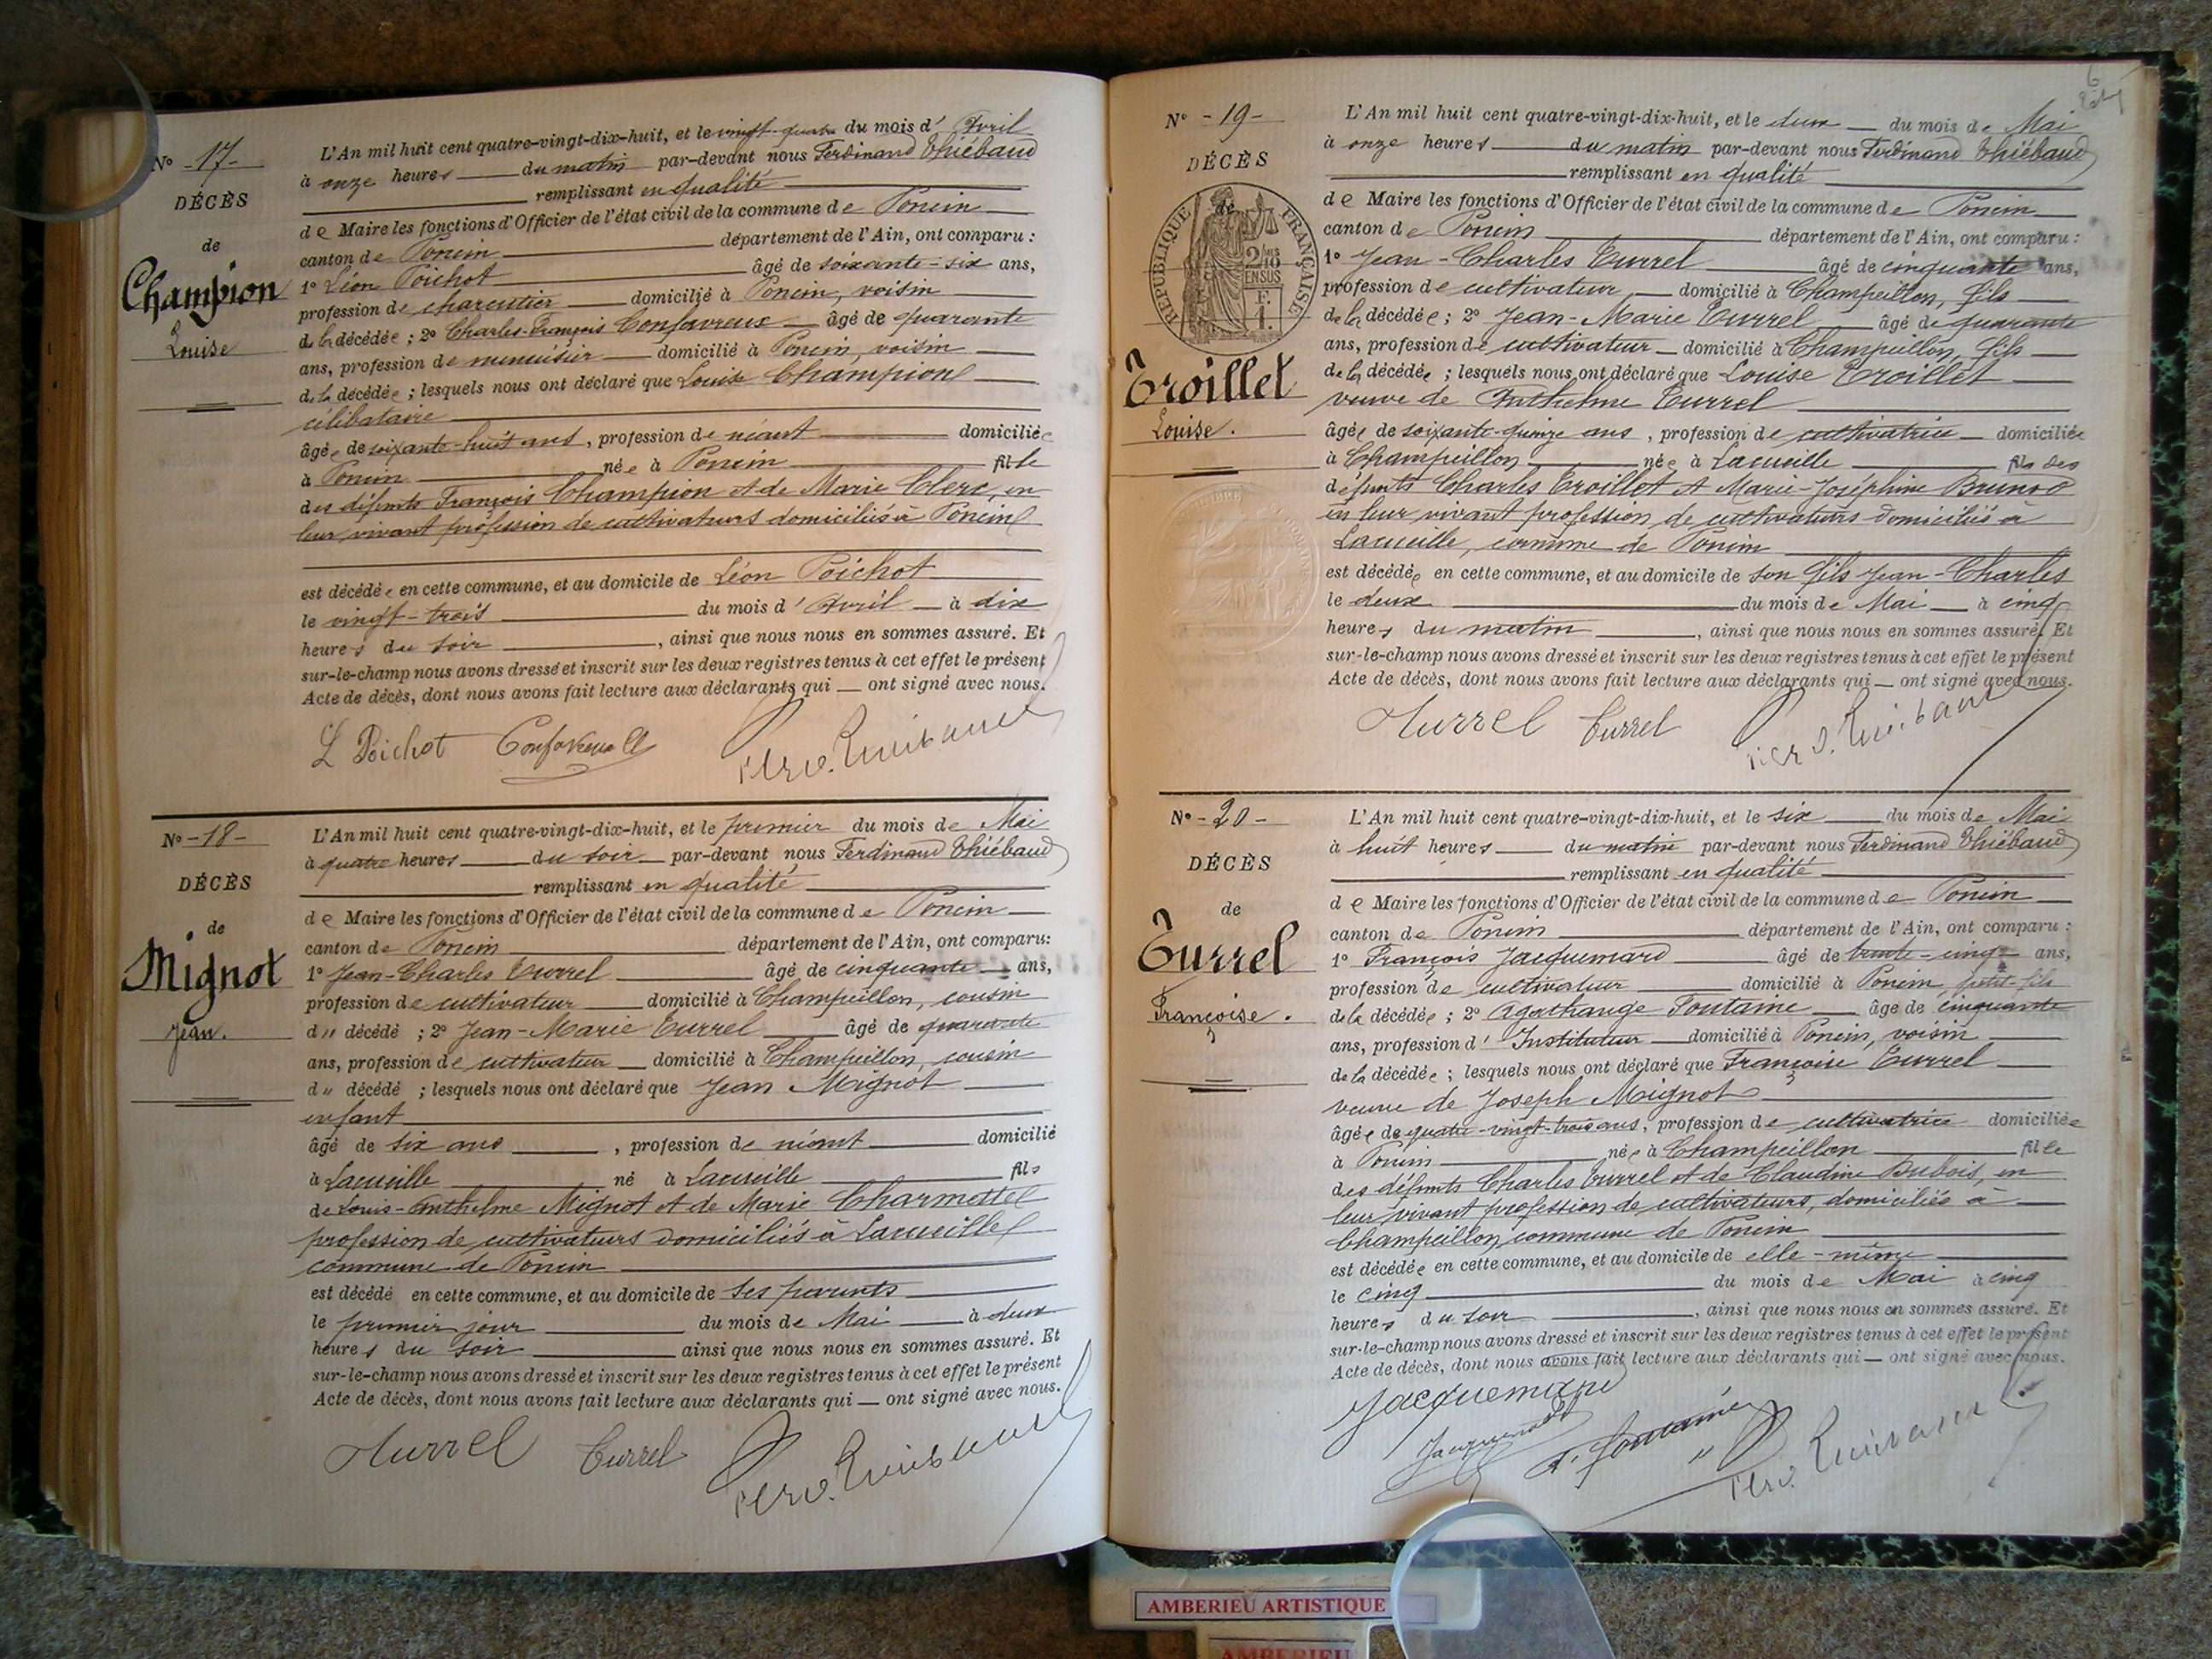 N° - 17 -
DÉCÈS
de
Champion
Louise
L'An mil huit cent quatre-vingt-dix-huit, et le vingt-quatre du mois d' Avril
à onze heures du matin par-devant nous Ferdinand Thiébaud
remplissant en qualité
de Maire les fonctions d'Officier de l'état civil de la commune de Poncin
canton de Poncin département de l'Ain, ont comparu :
1° Léon Poichot âgé de soixante-six ans,
profession de charcutier domicilié à Poncin, voisin
de la décédée ; 2° Charles-François Confavreux âgé de quarante
ans, profession de menuisier domicilié à Poncin, voisin
de la décédée ; lesquels nous ont déclaré que Louise Champion
célibataire
âgée de soixante-huit ans, profession de néant domiciliée
à Poncin née à Poncin fille
des défunts François Champion et de Marie Clerc, en
leur vivant profession de cultivateurs domiciliés à Poncin
est décédée en cette commune, et au domicile de Léon Poichot
le vingt-trois du mois d' Avril à dix
heures du soir, ainsi que nous nous en sommes assuré. Et
sur-le-champ nous avons dressé et inscrit sur les deux registres tenus à cet effet le présent
Acte de décès, dont nous avons fait lecture aux déclarants qui ont signé avec nous.
L Poichot Confavreux
N° - 18 -
DÉCÈS
de
Mignot
Jean.
L'An mil huit cent quatre-vingt-dix-huit, et le premier du mois de Mai
à quatre heures du soir par-devant nous Ferdinand Thiébaud
remplissant en qualité
de Maire les fonctions d'Officier de l'état civil de la commune de Poncin
canton de Poncin département de l'Ain, ont comparu:
1° Jean-Charles Turrel âgé de cinquante ans,
profession de cultivateur domicilié à Champeillon, cousin
du décédé ; 2° Jean-Marie Turrel âgé de quarante
ans, profession de cultivateur domicilié à Champeillon, cousin
du décédé ; lesquels nous ont déclaré que Jean Mignot
enfant
âgé de six ans, profession de néant domicilié
à Lacueille né à Lacueille fils
de Louis-Anthelme Mignot et de Marie Charmettel
profession de cultivateurs domiciliés à Lacueille
commune de Poncin
est décédé en cette commune, et au domicile de ses parents
le premier jour du mois de Mai à deux
heures du soir ainsi que nous nous en sommes assuré. Et
sur-le-champ nous avons dressé et inscrit sur les deux registres tenus à cet effet le présent
Acte de décès, dont nous avons fait lecture aux déclarants qui ont signé avec nous.
Turrel Turrel
6
N° - 19 -
DÉCÈS
de
RÉPUBLIQUE FRANÇAISE
2/10 EN SUS
F. 1.
Troillet
Louise.
L'An mil huit cent quatre-vingt-dix-huit, et le deux du mois de Mai
à onze heures du matin par-devant nous Ferdinand Thiébaud
remplissant en qualité
de Maire les fonctions d'Officier de l'état civil de la commune de Poncin
canton de Poncin département de l'Ain, ont comparu :
1° Jean-Charles Turrel âgé de cinquante ans,
profession de cultivateur domicilié à Champeillon, fils
de la décédée ; 2° Jean-Marie Turrel âgé de quarante
ans, profession de cultivateur domicilié à Champeillon, fils
de la décédée ; lesquels nous ont déclaré que Louise Troillet
veuve de Anthelme Turrel
âgée de soixante-quinze ans, profession de cultivatrice domiciliée
à Champeillon née à Lacueille fils des
défunts Charles Troillet et Marie-Joséphine Bruno
en leur vivant profession de cultivateurs domiciliés à
Lacueille, commune de Poncin
est décédée en cette commune, et au domicile de son fils Jean-Charles
le deux du mois de Mai à cinq
heures du matin, ainsi que nous nous en sommes assuré. Et
sur-le-champ nous avons dressé et inscrit sur les deux registres tenus à cet effet le présent
Acte de décès, dont nous avons fait lecture aux déclarants qui ont signé avec nous.
Turrel Turrel
N° - 20 -
DÉCÈS
de
Turrel
Françoise.
L'An mil huit cent quatre-vingt-dix-huit, et le six du mois de Mai
à huit heures du matin par-devant nous Ferdinand Thiébaud
remplissant en qualité
de Maire les fonctions d'Officier de l'état civil de la commune de Poncin
canton de Poncin département de l'Ain, ont comparu :
1° François Jacquemard âgé de trente-cinq ans,
profession de cultivateur domicilié à Poncin, petit-fils
de la décédée ; 2° Agathange Fontaine âgé de cinquante
ans, profession d' Instituteur domicilié à Poncin, voisin
de la décédée ; lesquels nous ont déclaré que Françoise Turrel
veuve de Joseph Mignot
âgée de quatre-vingt-trois ans, profession de cultivatrice domiciliée
à Poncin née à Champeillon fille
des défunts Charles Turrel et de Claudine Dubois, en
leur vivant profession de cultivateurs, domiciliés à
Champeillon, commune de Poncin
est décédée en cette commune, et au domicile de elle-même
le cinq du mois de Mai à cinq
heures du soir, ainsi que nous nous en sommes assuré. Et
sur-le-champ nous avons dressé et inscrit sur les deux registres tenus à cet effet le présent
Acte de décès, dont nous avons fait lecture aux déclarants qui ont signé avec nous.
Jacquemard
A. Fontaine
AMBERIEU ARTISTIQUE
AMBERIEU